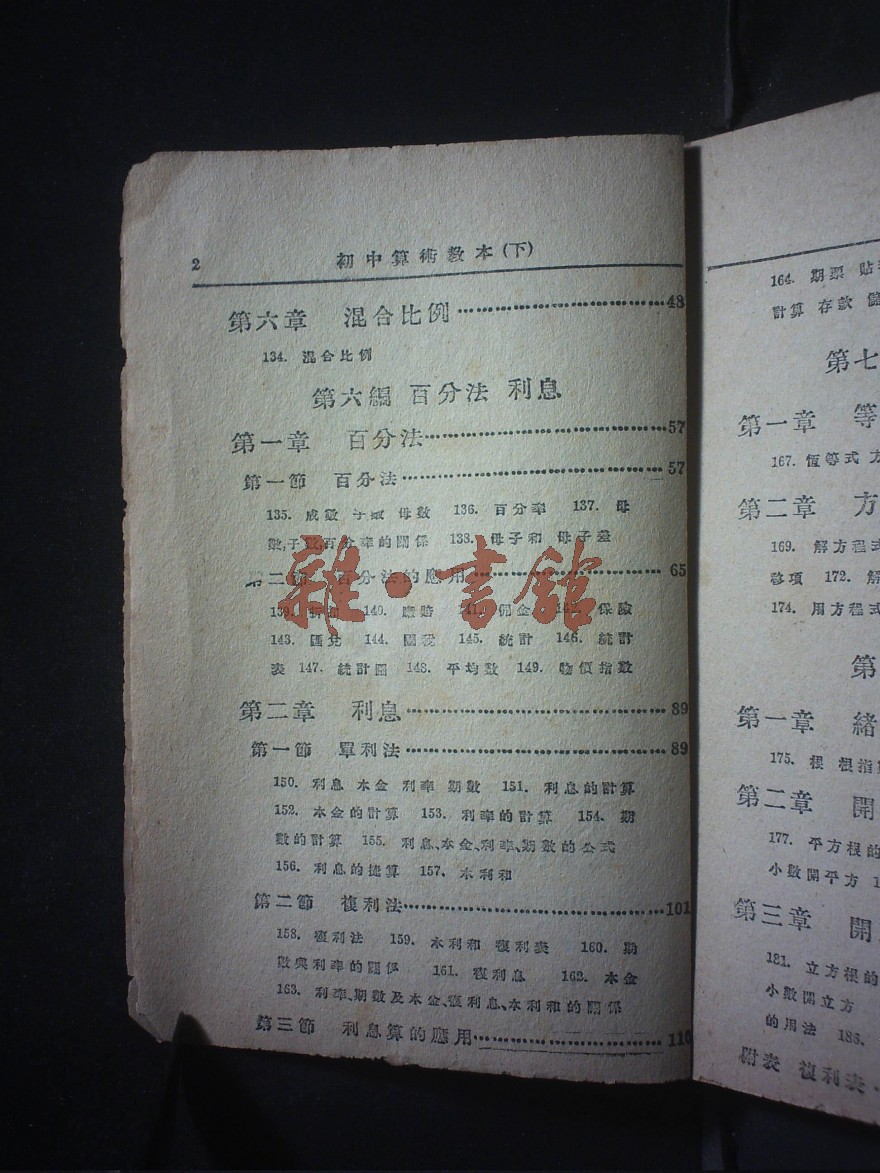 2 初中算術教本(下)
第六章 混合比例……48
134. 混合比例
第六編 百分法 利息
第一章 百分法……57
第一節 百分法……57
135. 成數 子數 母數 136. 百分率 137. 母
數,子數,百分率的關係 138. 母子和 母子差
第二節 百分法的應用……65
139. 140. 賺賠 141. 佣金 142. 保險
143. 匯兌 144. 關稅 145. 統計 146. 統計
表 147. 統計圖 148. 平均數 149. 物價指數
第二章 利息……89
第一節 單利法……89
150. 利息 本金 利率 期數 151. 利息的計算
152. 本金的計算 153. 利率的計算 154. 期
數的計算 155. 利息、本金、利率、期數的公式
156. 利息的捷算 157. 本利和
第二節 複利法……101
158. 複利法 159. 本利和 複利表 160. 期
數與利率的關係 161. 複利息 162. 本金
163. 利率、期數及本金、複利息、本利和的關係
第三節 利息算的應用……110
雜·書館
164. 期票 貼
計算 存款 儲
第七
第一章 等
167. 恆等式 方
第二章 方
169. 解方程式
移項 172. 解
174. 用方程式
第
第一章 緒
175. 根 根指數
第二章 開
177. 平方根的
小數開平方
第三章 開
181. 立方根的
小數開立方
的用法 186.
附表 複利表